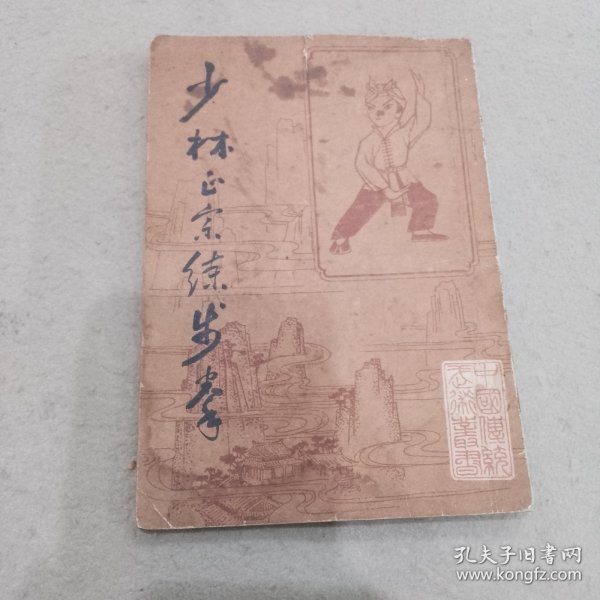 少林正宗练步拳
中國傳統
武術叢書
孔夫子旧书网
www.kongfz.com